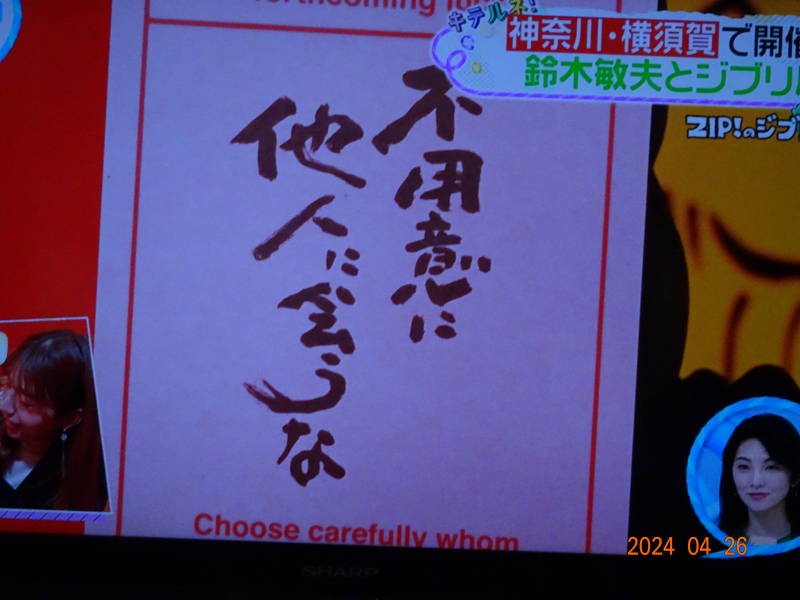 forthcoming
キテルネ!
神奈川・横須賀で開催
鈴木敏夫とジブリ
ZIP!のジブ
不用意に
他人に会うな
Choose carefully whom
2024 04 26
SHARP